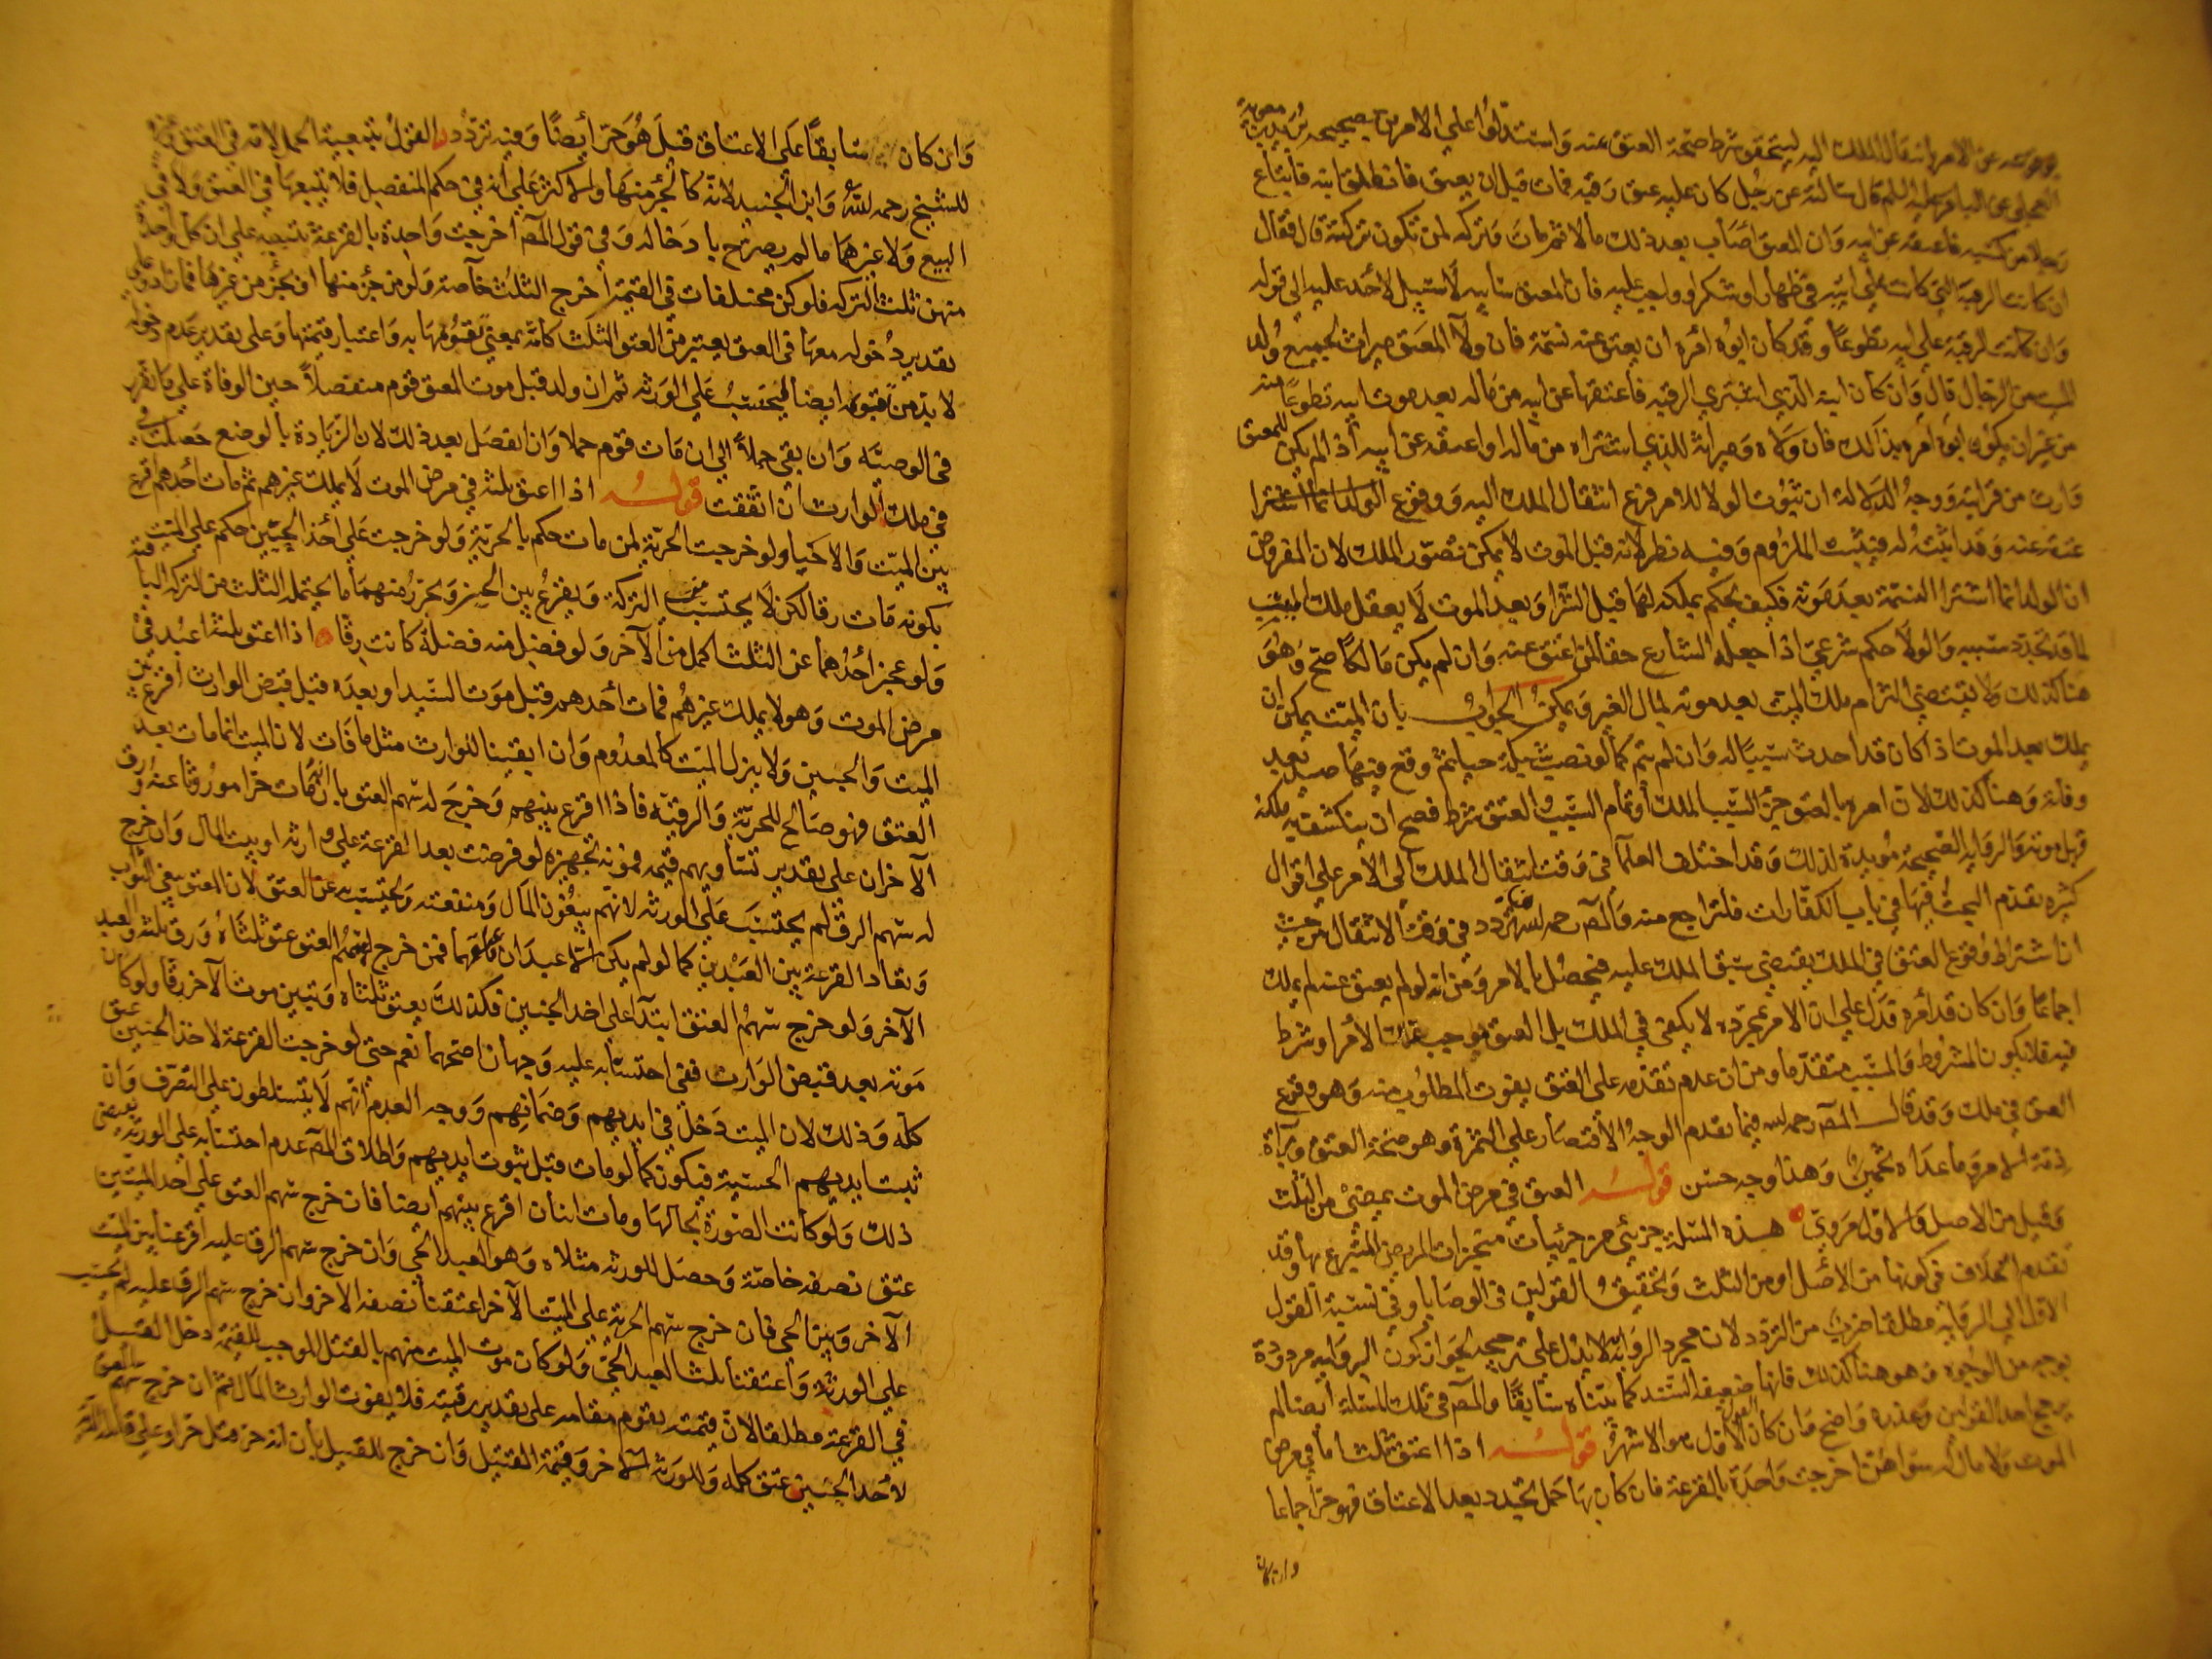 عن الامر انتقال الملك اليه ليتحقق شرط صحة العتق عنه واستدلوا على الامرين بصحيحة بريد بن معوية
العجلي عن الباقر عليه السلم قال سالته عن رجل كان عليه عتق رقبة فمات قبل ان يعتق فانطلق ابنه فابتاع
رجلا من كسبه فاعتقه عن ابيه وان المعتق اصاب بعد ذلك مالا ثم مات وتركه لمن تكون تركته قال فقال
ان كانت الرقبة التي كانت على ابيه في ظهار او شكر او واجب عليه فان المعتق سايبه لا سبيل لاحد عليه الى قوله
وان كانت الرقبة على ابيه تطوعا وقد كان ابوه امره ان يعتق عنه نسمة فان ولا المعتق ميراث لجميع ولد
الميت من الرجال قال وان كان ابنه الذي اشترى الرقبة فاعتقها عن ابيه من ماله بعد موت ابيه تطوعا منه
من غير ان يكون ابوه امره بذلك فان ولاه وميراثه للذي اشتراه من ماله واعتقه عن ابيه اذا لم يكن للمعتق
وارث من قرابته ووجه الدلالة ان ثبوت الولا للامر فرع انتقال الملك اليه ووقوع
عنه وقد اثبته له فيثبت الملزوم وفيه نظر لانه قبل الموت لا يمكن تصور الملك لان المفروض
ان الولد انما اشترا النسمة بعد موته فكيف يحكم بملكه لها قبل الشرا وبعد الموت لا يعقل ملك الميت
لما قد تجدد سببه والولا حكم شرعي اذا جعله الشارع حقا لمن اعتق عنه وان لم يكن مالكا صح وهو
هنا كذلك ولا يقتضي التزام ملك الميت بعد موته لمال الغير ويمكن الجواب بان الميت يمكن ان
يملك بعد الموت اذا كان قد احدث سببا له وان لم يتم كما لو نصب شبكة حيا ثم وقع فيها صيد بعد
وفاته وهنا كذلك لان امره بالعتق جزء السبب الملك وتمام السبب العتق بشرط فصح ان ينكشف به ملكه
قبل موته والرواية الصحيحة مويدة لذلك وقد اختلف العلما في وقت انتقال الملك الى الامر على اقوال
كثيرة تقدم البحث فيها في باب الكفارات فلتراجع منه والمص رحمه الله تردد في وقت الانتقال من حيث
ان اشتراط وقوع العتق في الملك يقتضي سبق الملك عليه فيحصل بالامر ومن انه لو لم يعتق عنه لم يملك
اجماعا وان كان قد امره فدل على ان الامر بمجرده لا يكفي في الملك بل العتق موجب الامر او شرط
فيه فلا يكون المشروط والمسبب متقدما ومن ان عدم تقدمه على العتق يفوت المطلوب منه وهو وقوع
العتق في ملك وقد قال المص رحمه الله فيما تقدم الوجه الاقتصار على الثمرة وهو صحة العتق وبراة
ذمة الامر وما عداه تخمين وهذا وجه حسن قوله العتق في مرض الموت يمضي من الثلث
وقيل من الاصل والاول مروي هذه المسئلة جزئي من جزئيات منجزات المريض المتبرع بها وقد
تقدم الخلاف في كونها من الاصل او من الثلث وتحقيق القولين في الوصايا وفي نسبة القول
الاول الى الرواية مطلقا ضرب من التردد لان مجرد الرواية لا يدل على ترجيحه لجواز كون الرواية مردودة
بوجه من الوجوه وهو هنا كذلك فانها ضعيفة السند كما بيناه سابقا والمص في تلك المسئلة ايضا لم
يرجح احد القولين وعذره واضح وان كان القول الاول هو الاشهر قوله اذا اعتق ثلث اما في مرض
الموت ولا مال له سواهن اخرجت واحدة بالقرعة فان كان بها حمل تجدد بعد الاعتاق فهو حر اجماعا
وان كان
وان كان سابقا على الاعتاق قيل هو حر ايضا وفيه تردد القول بتبعية الحمل لامه في العتق
للشيخ رحمه الله وابن الجنيد لانه كالجزء منها والاكثر على انه في حكم المنفصل فلا يتبعها في العتق ولا في
البيع ولا غيرهما ما لم يصرح بادخاله وفي قول المص اخرجت واحدة بالقرعة تنبيه على ان كل واحدة
منهن ثلث التركة فلو كن مختلفات في القيمة اخرج الثلث خاصة ولو من جزء منها او بجزء من غيرها فما زاد وعلى
تقدير دخوله معها في العتق يعتبر من العتق الثلث كانه بمعنى تقويمها به واعتبار قيمتها وعلى تقدير عدم دخوله
لا بد من تقويمه ايضا ليحتسب على الورثة ثم ان ولد قبل موت المعتق قوم منفصلا حين الوفاة على ما تقرر
في الوصية وان بقي حملا الى ان مات قوم حملا وان انفصل بعد ذلك لان الزيادة بالوضع حصلت في
في ملك الوارث ان اتفقت قوله اذا اعتق ثلثه في مرض الموت لا يملك غيرهم ثم مات احدهم اقرع
بين الميت والاحيا ولو خرجت الحرية لمن مات حكم بالحرية ولو خرجت على احد الحيين حكم على الميت
بكونه مات رقا لكن لا يحتسب من التركة ويقرع بين الحيين ويحرر منهما ما يحتمله الثلث من التركة الباقية
ولو عجز احدهما عن الثلث اكمل من الآخر ولو فضل منه فضلة كانت رقا اذا اعتق ثلثة اعبد في
مرض الموت وهو لا يملك غيرهم فمات احدهم قبل موت السيد او بعده قبل قبض الوارث اقرع بين
الميت والحيين ولا ينزل الميت كالمعدوم وان ابقينا للوارث مثل ما فات لان الميت انما مات بعد
العتق فهو صالح للحرية والرقية فاذا اقرع بينهم وخرج له سهم العتق بان انه مات حرا موروثا عنه ورق
الآخران على تقدير تساويهم قيمة فمؤنة تجهيزه لو فرضت بعد القرعة على وارثه او بيت المال وان خرج
له سهم الرق لم يحتسب على الورثة لانهم يبغون المال ومنفعته ويحتسب به عن العتق لان المعتق يبغي الثواب
وتعاد القرعة بين العبدين كما لو لم يكن الا عبدان فمن خرج له سهم العتق عتق ثلثاه ورق ثلثه والعبد
الآخر ولو خرج سهم العتق ابتدآ على احد الحيين فكذلك يعتق ثلثاه وتبين موت الآخر رقا ولو كان
موته بعد قبض الوارث ففي احتسابه عليه وجهان اصحهما نعم حتى لو خرجت القرعة لاحد الحيين عتق
كله وذلك لان الميت دخل في ايديهم وضمانهم ووجه العدم انهم لا يتسلطون على التصرف وان
ثبت ايديهم الحسية فيكون كما لو مات قبل ثبوت ايديهم واطلاق المص عدم احتسابه على الورثة يقتضي
ذلك ولو كانت الصورة بحالها ومات اثنان اقرع بينهم ايضا فان خرج سهم العتق على احد الميتين
عتق نصفه خاصة وحصل للورثة مثلاه وهو العبد الحي وان خرج سهم الرق عليه اقرعنا بين الميت
الآخر وبين الحي فان خرج سهم الحرية على الميت الآخر اعتقنا نصفه الآخر وان خرج سهم الرق عليه لم يحتسب
على الورثة واعتقنا ثلث العبد الحي ولو كان موت الميت منهم بالقتل الموجب للقيمة دخل القتيل
في القرعة مطلقا لان قيمته تقوم مقامه على تقدير رقيته فلا يفوت الوارث المال ثم ان خرج سهم العتق
لاحد الحيين عتق كله وللورثة الآخر وقيمة القتيل وان خرج للقتيل بان انه حر قتل حرا وعلى قاتله الدية